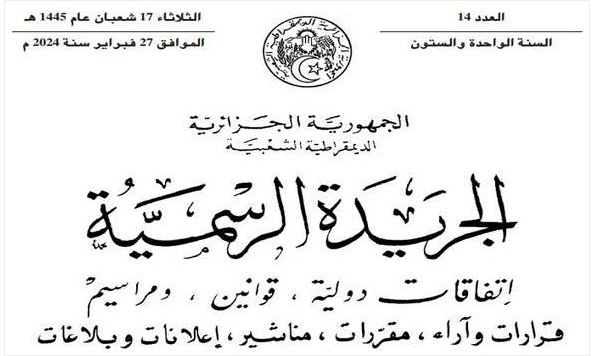 العدد 14
الثلاثاء 17 شعبان عام 1445 هـ
السنة الواحدة والستون
الموافق 27 فبراير سنة 2024 م
الجمهورية الجزائرية
الديمقراطية الشعبية
الجريدة الرسمية
إتفاقات دولية ، قوانين ، ومراسيم
قرارات وآراء ، مقررات ، مناشير ، إعلانات وبلاغات